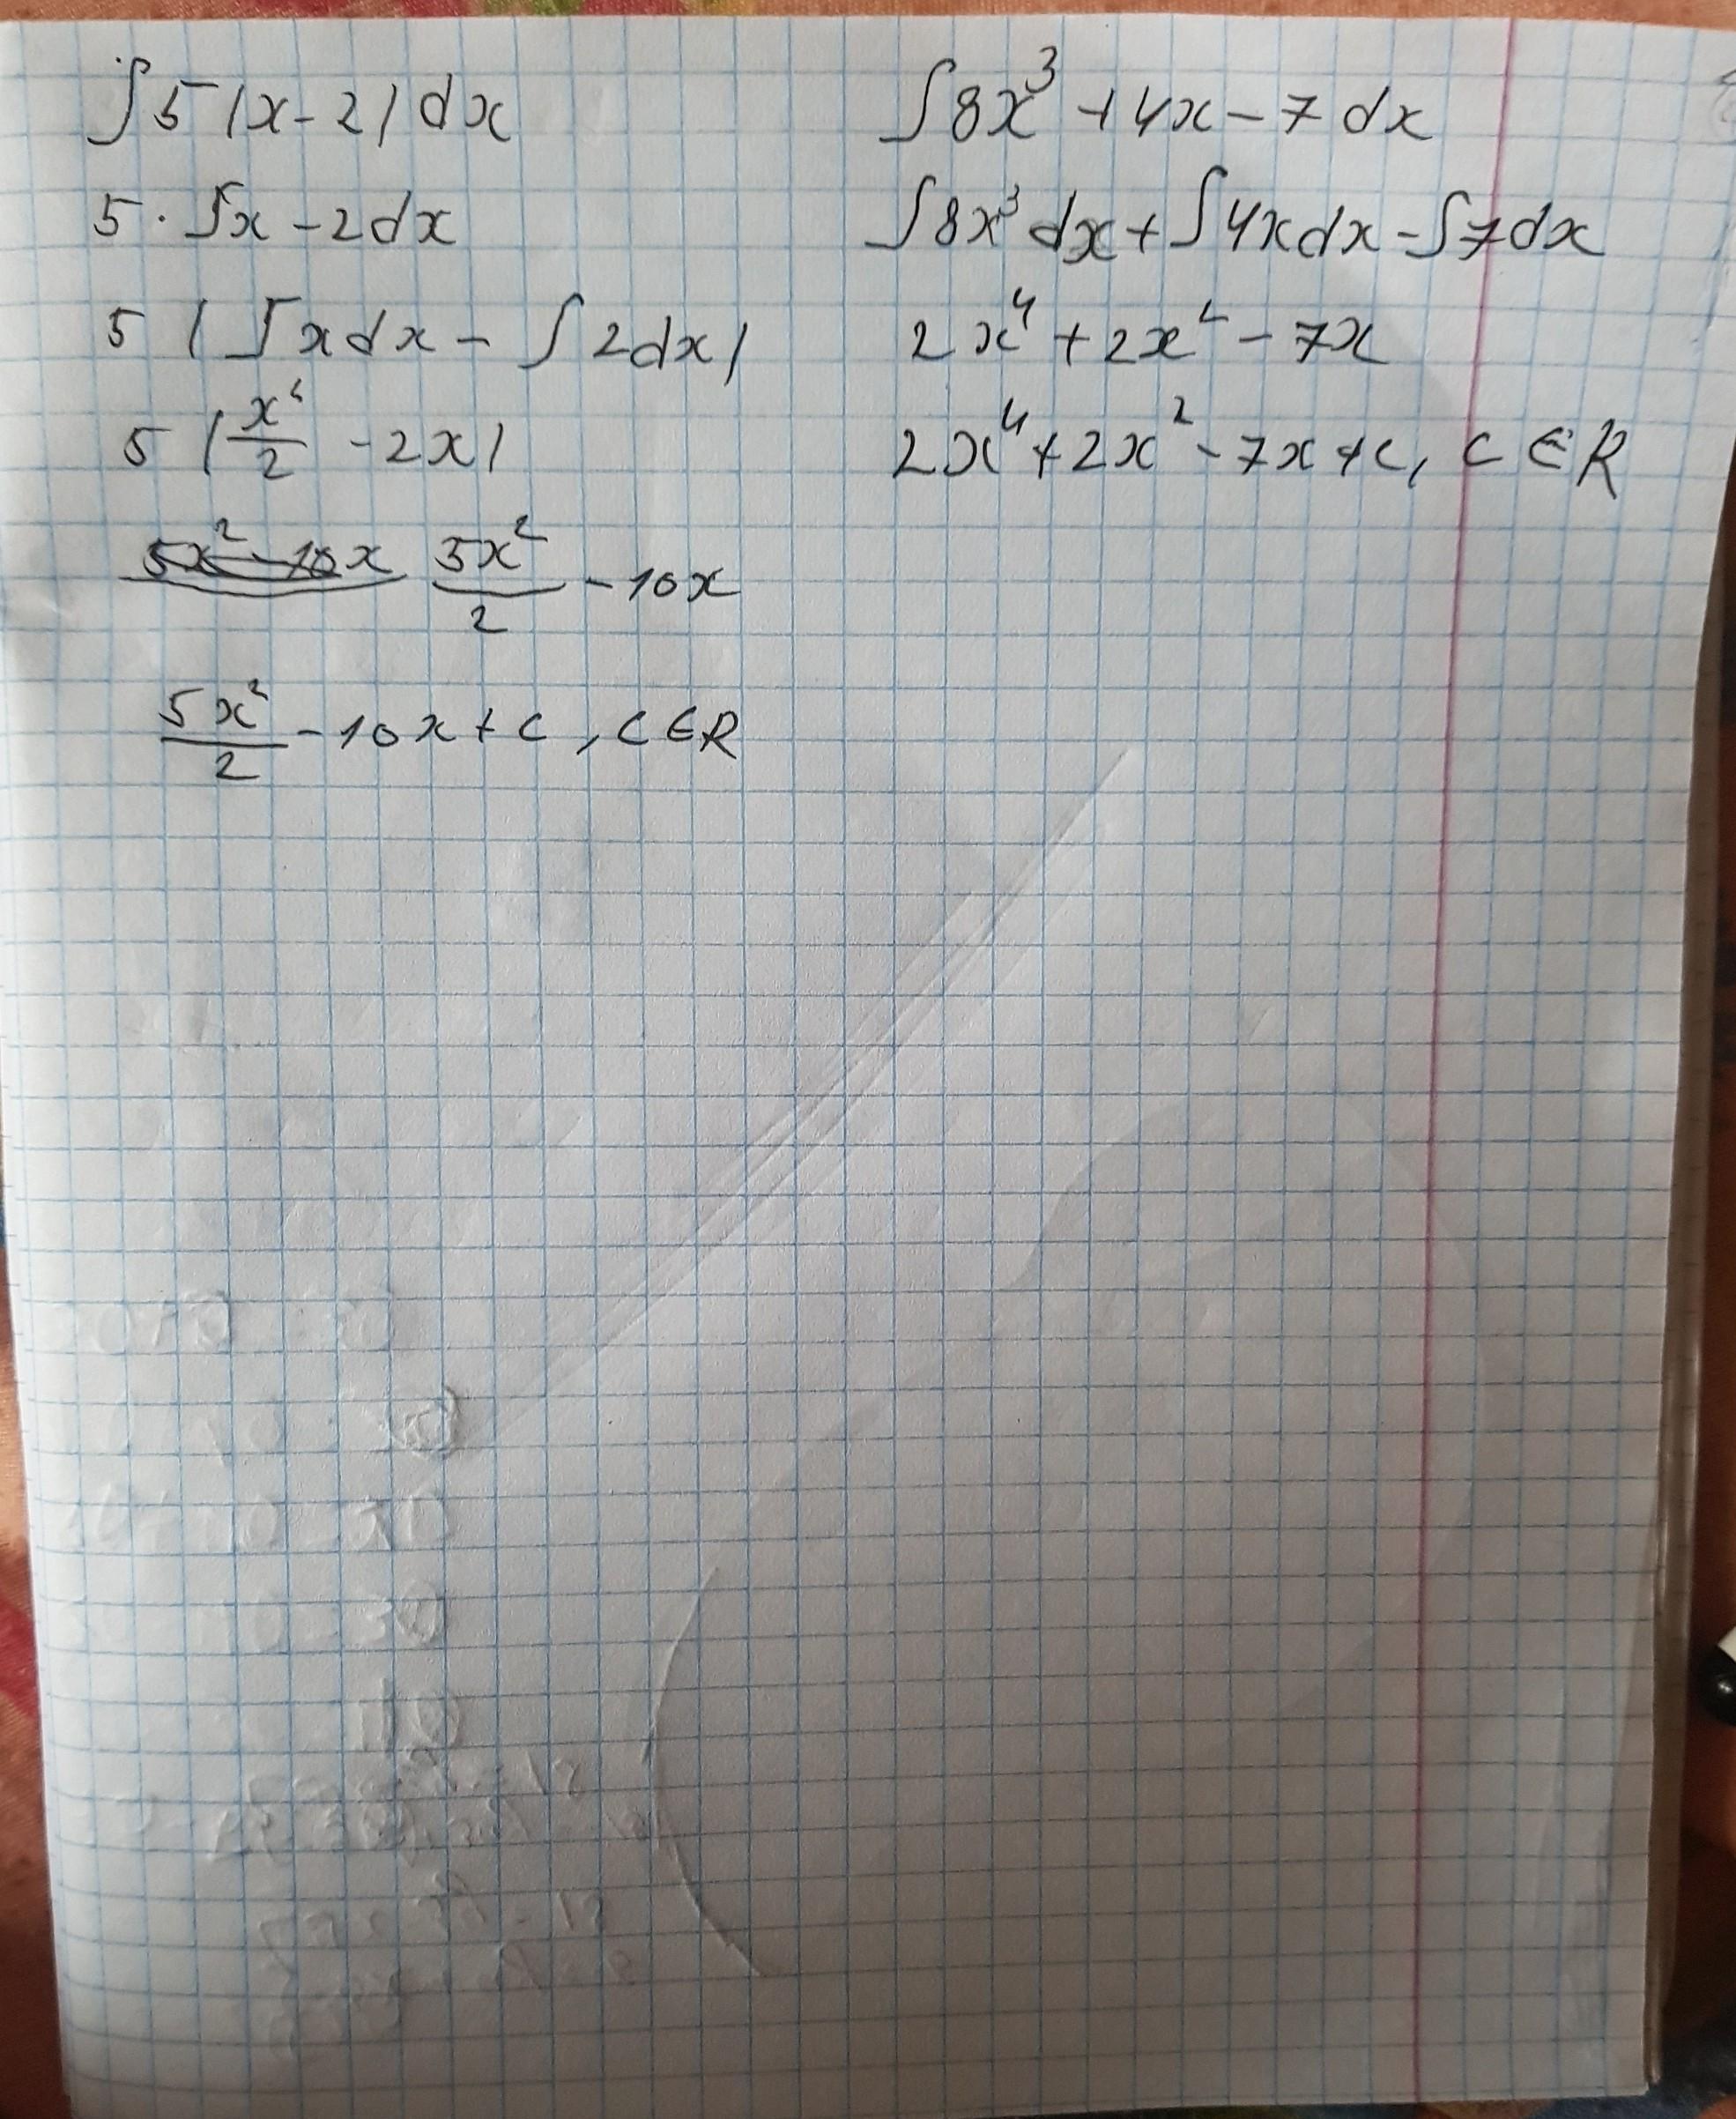 ∫ 5 (x - 2) dx
5 · ∫x - 2 dx
5 ( ∫x dx - ∫ 2 dx )
5 ( x²/2 - 2x )
5x² - 10x 5x²/2 - 10x
5x²/2 - 10x + c , c ∈ R
∫ 8x³ + 4x - 7 dx
∫ 8x³ dx + ∫ 4x dx - ∫ 7 dx
2x⁴ + 2x² - 7x
2x⁴ + 2x² - 7x + c, c ∈ R